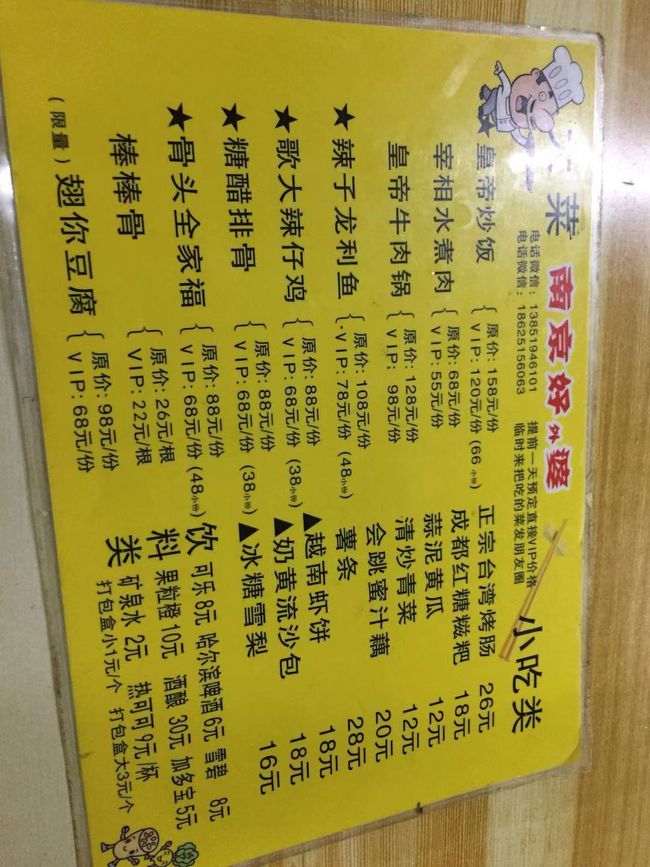 菜
南京好外婆
小吃类
电话微信：13851946101 提前一天预定直接VIP价格
电话微信：18625156063 临时来把吃的菜发朋友圈
★皇帝炒饭 { 原价：158元/份
VIP：120元/份 (66小份)
宰相水煮肉 { 原价：68元/份
VIP：55元/份
皇帝牛肉锅 { 原价：128元/份
VIP： 98元/份
★辣子龙利鱼 { 原价：108元/份
VIP：78元/份 (48小份)
★歌大辣仔鸡 { 原价：88元/份
VIP：68元/份 (38小份)
★糖醋排骨 { 原价：88元/份
VIP：68元/份 (38小份)
★骨头全家福 { 原价：88元/份
VIP：68元/份 (48小份)
棒棒骨 { 原价：26元/根
VIP：22元/根
(限量) 翅你豆腐 { 原价：98元/份
VIP：68元/份
正宗台湾烤肠 26元
成都红糖糍粑 18元
蒜泥黄瓜 12元
清炒青菜 12元
会跳蜜汁藕 20元
薯条 28元
▲越南虾饼 18元
▲奶黄流沙包 18元
▲冰糖雪梨 16元
饮料类
可乐 8元 哈尔滨啤酒 6元 雪碧 8元
果粒橙 10元 酒酿 30元 加多宝 5元
矿泉水 2元 热可可 9元/杯
打包盒小1元/个 打包盒大3元/个